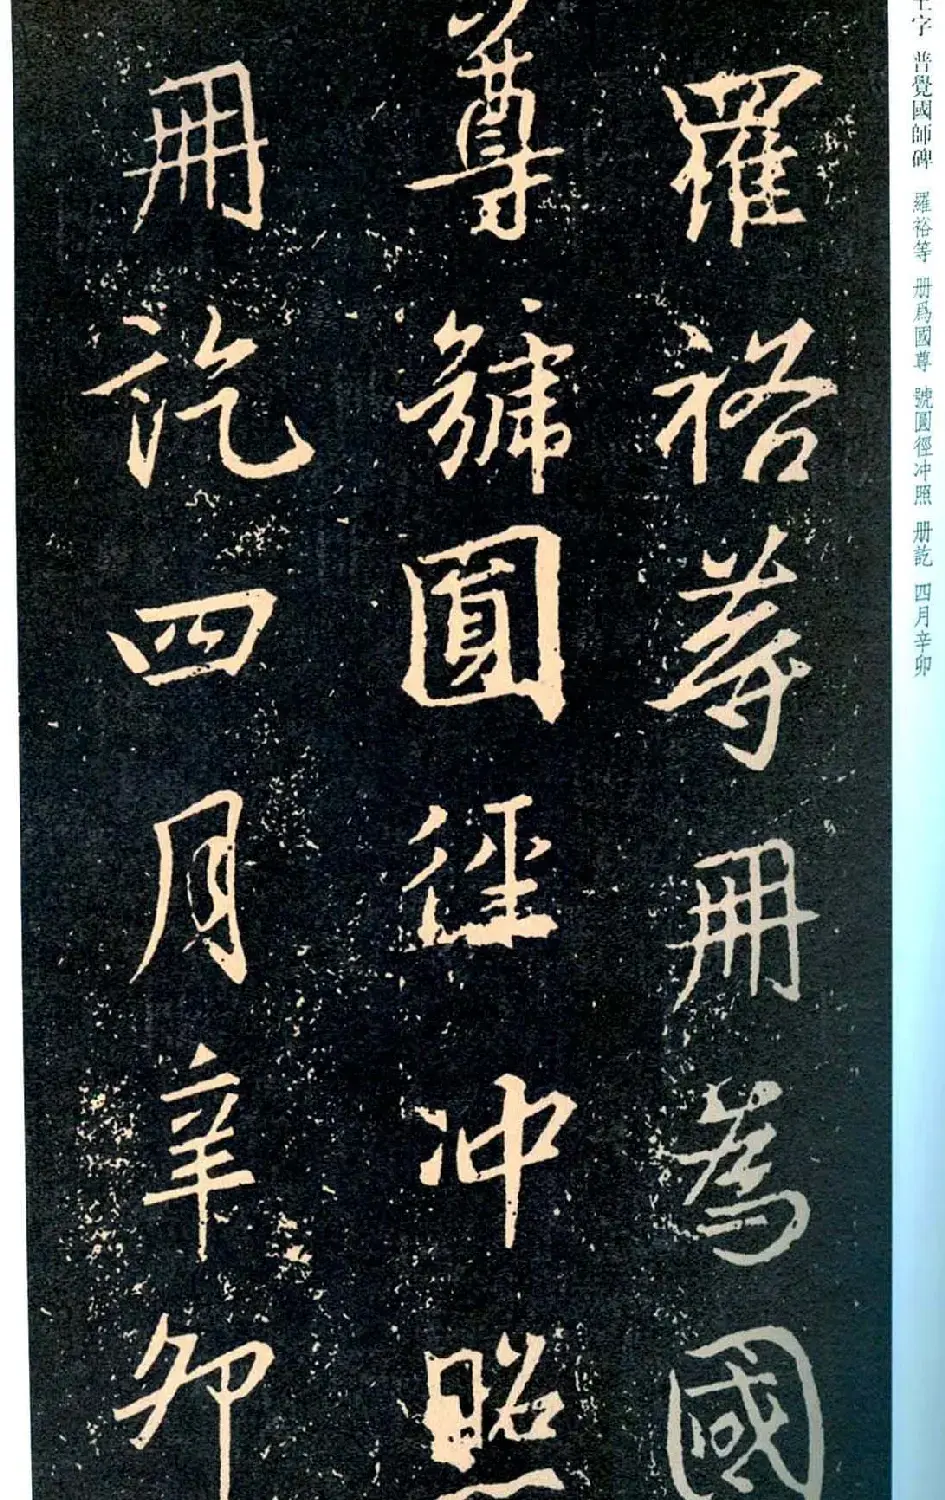 字 普覺國師碑 羅裕等 册爲國尊 號圓徑冲照 册訖 四月辛卯
羅裕等册為國
尊號圓徑冲照
册訖四月辛卯